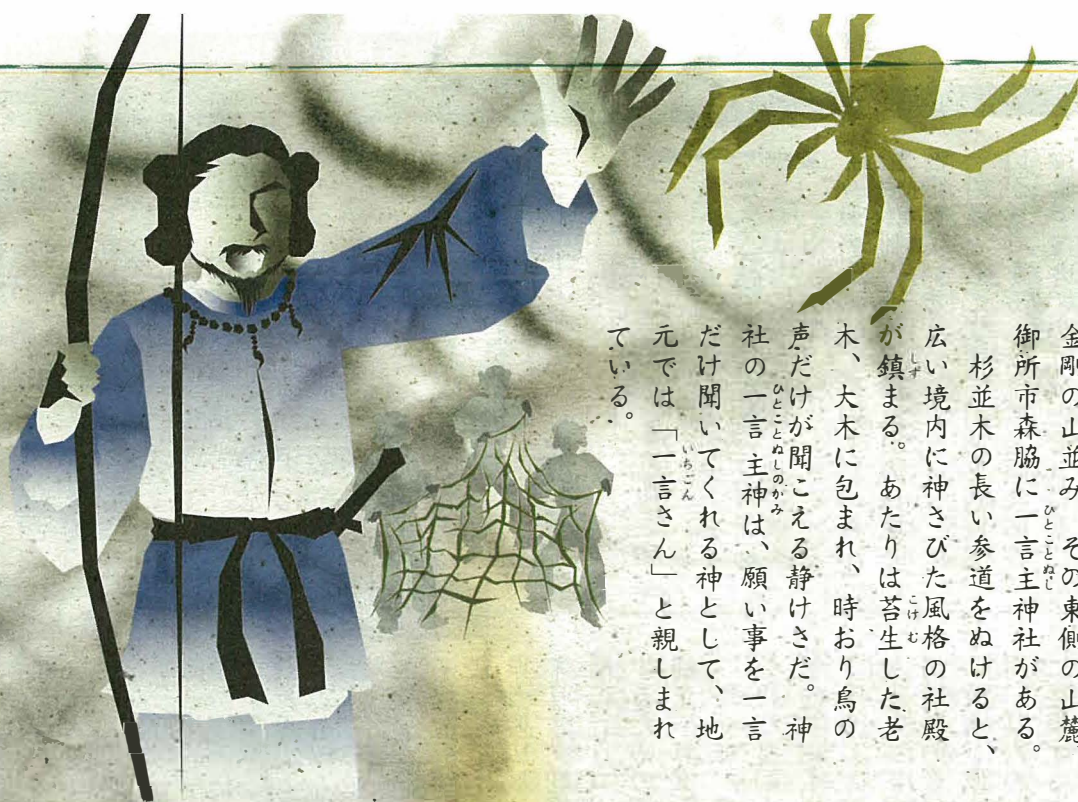 金剛の山並み、その東側の山麓
御所市森脇に一言主神社がある。
杉並木の長い参道をぬけると、
広い境内に神さびた風格の社殿
が鎮まる。あたりは苔生した老
木、大木に包まれ、時おり鳥の
声だけが聞こえる静けさだ。神
社の一言主神は、願い事を一言
だけ聞いてくれる神として、地
元では「一言さん」と親しまれ
ている。
ひとことぬし
しず
こけむ
ひとことぬしのかみ
いちごん